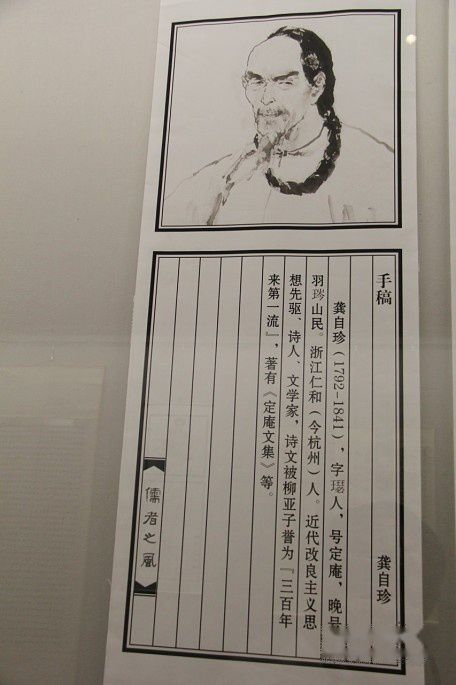 手稿 龚自珍
龚自珍（1792-1841），字璱人，号定庵，晚号
羽琌山民。浙江仁和（今杭州）人。近代改良主义思
想先驱、诗人、文学家，诗文被柳亚子誉为『三百年
来第一流』，著有《定庵文集》等。
儒者之风